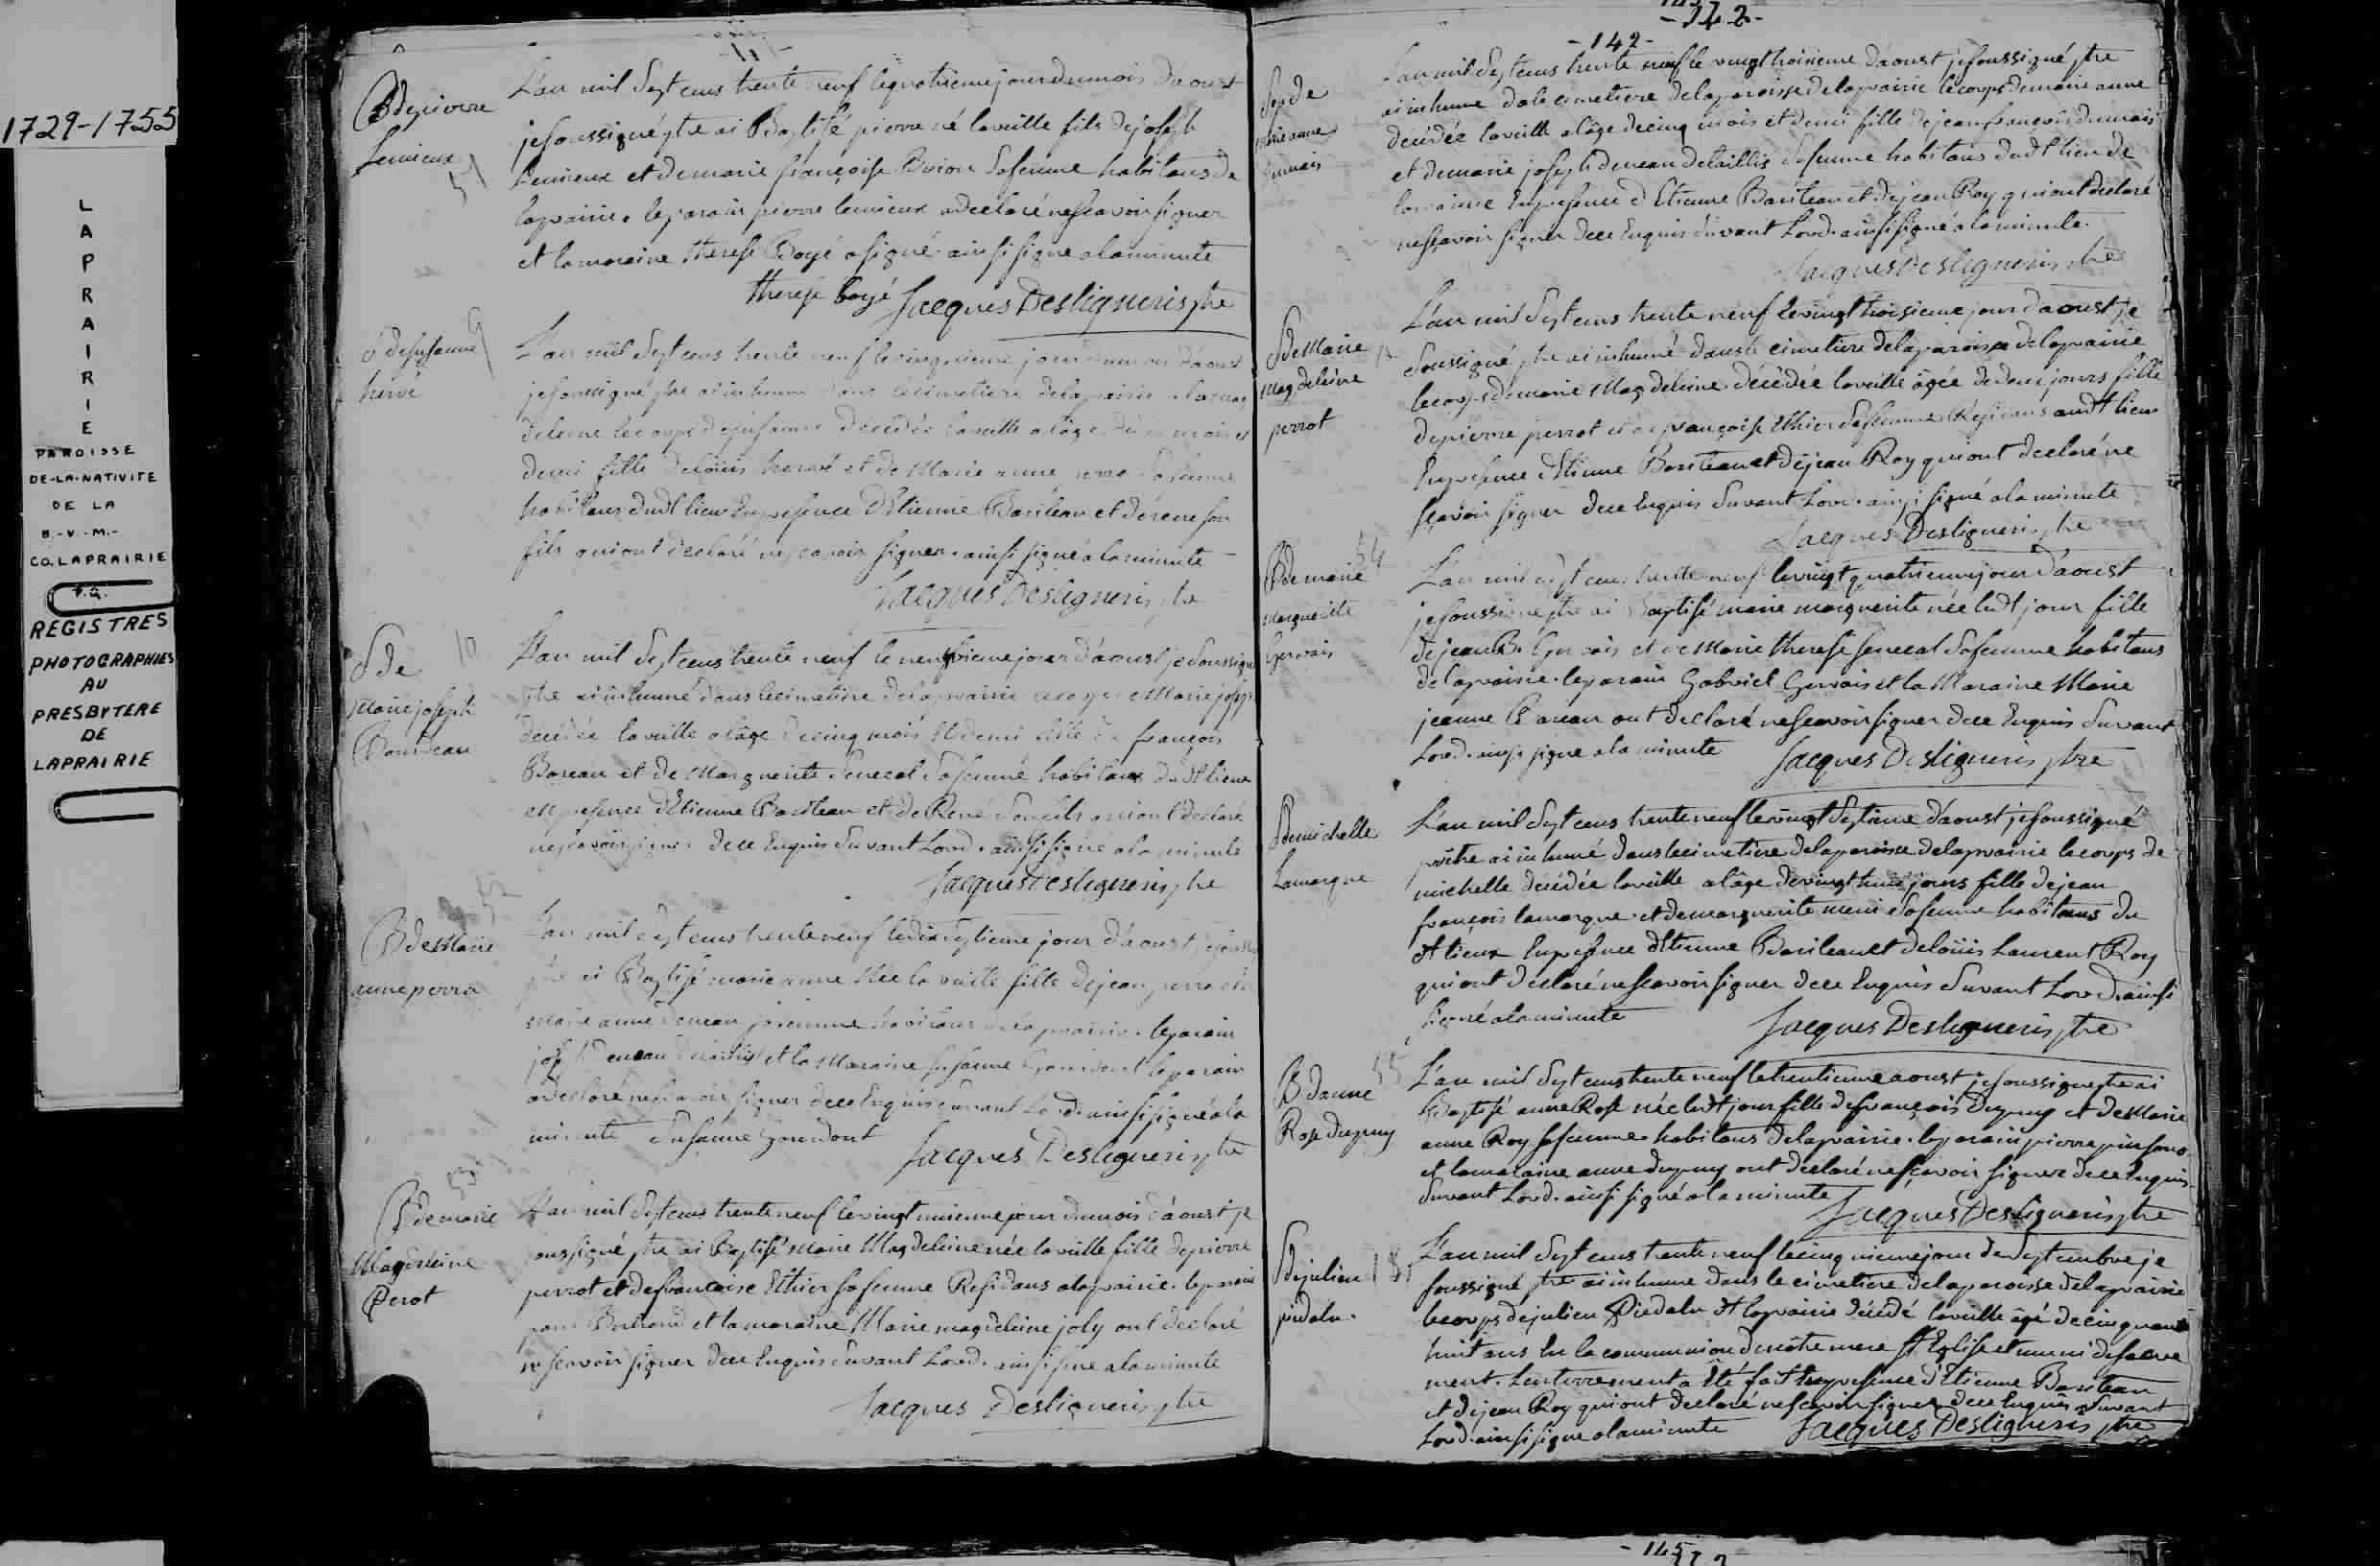 1729-1755
LAPRAIRIE
PAROISSE
DE-LA-NATIVITE
DE LA
B.-V.-M.-
CO. LAPRAIRIE
P.Q.
REGISTRES
PHOTOGRAPHIES
AU
PRESBYTERE
DE
LAPRAIRIE
B de pierre
Lemieux
51
L'an mil sept cens trente neuf le quatrieme jour du mois d'aoust
je soussigné ptre ai Baptisé pierre né la veille fils de joseph
Lemieux et de marie françoise sa femme habitans de
laprairie. le parain pierre lemieux a declaré ne scavoir signer
et la maraine therese Boyé a signé. ainsi signé a la minute
therese boyé Jacques Desligneris ptre
S de susanne
hervé
9
L'an mil sept cens trente neuf le cinquieme jour du mois d'aoust
je soussigné ptre ai inhumé dans le cimetiere de laprairie
le corps de susanne decedée la veille a l'âge de mois et
demi fille de loüis hervé et de Marie anne sa femme
habitans dudt lieu En presence d'Etienne Bariteau et de rene son
fils qui ont declaré ne scavoir signer. ainsi signé a la minute
Jacques Desligneris ptre
S de
Marie joseph
Bourdeau
10
L'an mil sept cens trente neuf le jour d'aoust je soussigné
ptre ai inhumé dans le cimetiere de laprairie le corps de Marie joseph
decedée la veille a l'âge de cinq mois et demi fille de françois
et de Marguerite senecal sa femme habitans dudt lieu
en presence d'Etienne Bariteau et de René son fils qui ont declaré
ne scavoir signer de ce Enquis suivant Lord. ainsi signé a la minute
Jacques Desligneris ptre
52
B de Marie
anne perra
L'an mil sept cens trente neuf le dix septieme jour d'aoust je soussigné
ptre ai Baptisé marie anne née la veille fille de jean perra et de
Marie anne deneau sa femme habitans de laprairie. le parain
joseph deneau et la Maraine susanne Gourdont le parain
a declaré ne scavoir signer de ce Enquis suivant Lord. ainsi signé a la
minute Susanne gourdont Jacques Desligneris ptre
53
B de marie
Magdeleine
Perot
L'an mil sept cens trente neuf le vingt unieme jour du mois d'aoust je
soussigné ptre ai Baptisé Marie Magdeleine née la veille fille de pierre
perrot et de francoise Ethier sa femme Residans a laprairie. le parain
et la maraine Marie magdeleine joly ont declaré
ne scavoir signer de ce Enquis suivant Lord. ainsi signé a la minute
Jacques Desligneris ptre
-142-
-142-
Sep de
marie anne
dumais
L'an mil sept cens trente neuf le vingt troisieme d'aoust je soussigné ptre
ai inhumé le cimetiere de la paroisse de laprairie le corps de marie anne
decedée la veille a l'âge de cinq mois et demi fille de jean françois dumais
et de marie joseph deneau detaillis sa femme habitans dudt lieu de
laprairie En presence d'Etienne Bariteau et de jean Roy qui ont declaré
ne scavoir signer de ce Enquis suivant Lord. ainsi signé a la minute.
Jacques Desligneris ptre
S de Marie
Magdeleine
perrot
L'an mil sept cens trente neuf le vingt troisieme jour d'aoust je
soussigné ptre ai inhumé dans le cimetiere de la paroisse de laprairie
le corps de marie Magdeleine decedée la veille âgée de deux jours fille
de pierre perrot et de françoise Ethier sa femme Residans audt lieu
En presence d'Etienne Bariteau et de jean Roy qui ont declaré ne
scavoir signer de ce Enquis suivant Lord. ainsi signé a la minute
Jacques Desligneris ptre
54
B de marie
marguerite
Gervais
L'an mil sept cens trente neuf le vingt quatrieme jour d'aoust
je soussigné ptre ai Baptisé marie marguerite née ledt jour fille
de jean B. Gervais et de Marie therese senecal sa femme habitans
de laprairie. le parain Gabriel Gervais et la Maraine Marie
jeanne ont declaré ne scavoir signer de ce Enquis suivant
Lord. ainsi signé a la minute Jacques Desligneris ptre
S de michelle
Lamarque
L'an mil sept cens trente neuf le vingt septieme d'aoust je soussigné
prêtre ai inhumé dans le cimetiere de la paroisse de laprairie le corps de
michelle decedée la veille a l'âge de vingt huit jours fille de jean
françois lamarque et de marguerite sa femme habitans du
dt lieu En presence d'Etienne Bariteau et de loüis Laurent Roy
qui ont declaré ne scavoir signer de ce Enquis suivant Lord. ainsi
signé a la minute Jacques Desligneris ptre
55
B d'anne
Rose dupuy
L'an mil sept cens trente neuf le trentieme aoust je soussigné ptre ai
Baptisé anne Rose née ledt jour fille de françois Dupuy et de Marie
anne Roy sa femme habitans de laprairie. le parain pierre pinsono
et la maraine anne dupuy ont declaré ne scavoir signer de ce Enquis
suivant Lord. ainsi signé a la minute Jacques Desligneris ptre
S de julien
piedalu.
L'an mil sept cens trente neuf le cinquieme jour de septembre je
soussigné ptre ai inhumé dans le cimetiere de la paroisse de laprairie
le corps de julien Piedalu dt laprairie décédé la veille âgé de cinquante
huit ans En la communion de nôtre mere Ste Eglise et muni de sacre
ment. L'enterrement a Eté fait En presence d'Etienne Bariteau
et de jean Roy qui ont declaré ne scavoir signer de ce Enquis suivant
Lord. ainsi signé a la minute Jacques Desligneris ptre
-145-